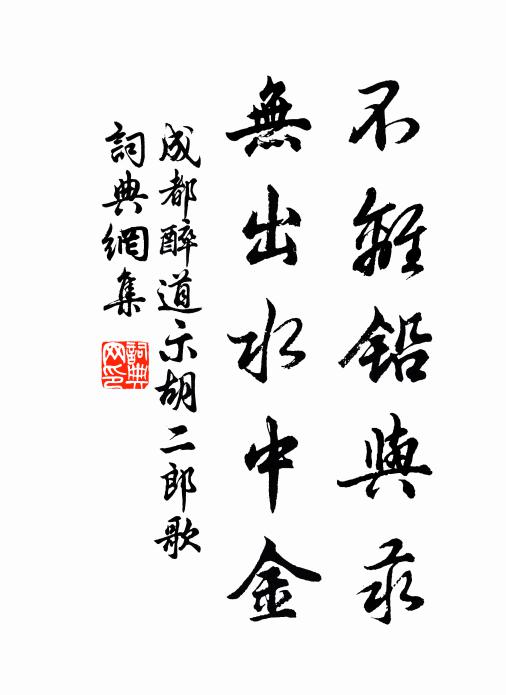 不離鉛與汞
無出水中金
成都醉道示胡二郎歌
詞典網集
詞典網印